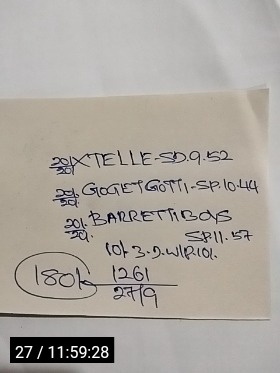 20/. XTELLE-SD.9.52
20/.
20/. GIOGETGOTTI-SP.10.44
20/.
20/. BARRETTIBOYS
20/. SP.11.57
10/ 3.2.W/P.10/.
180/- 1261
27/9
27 / 11:59:28